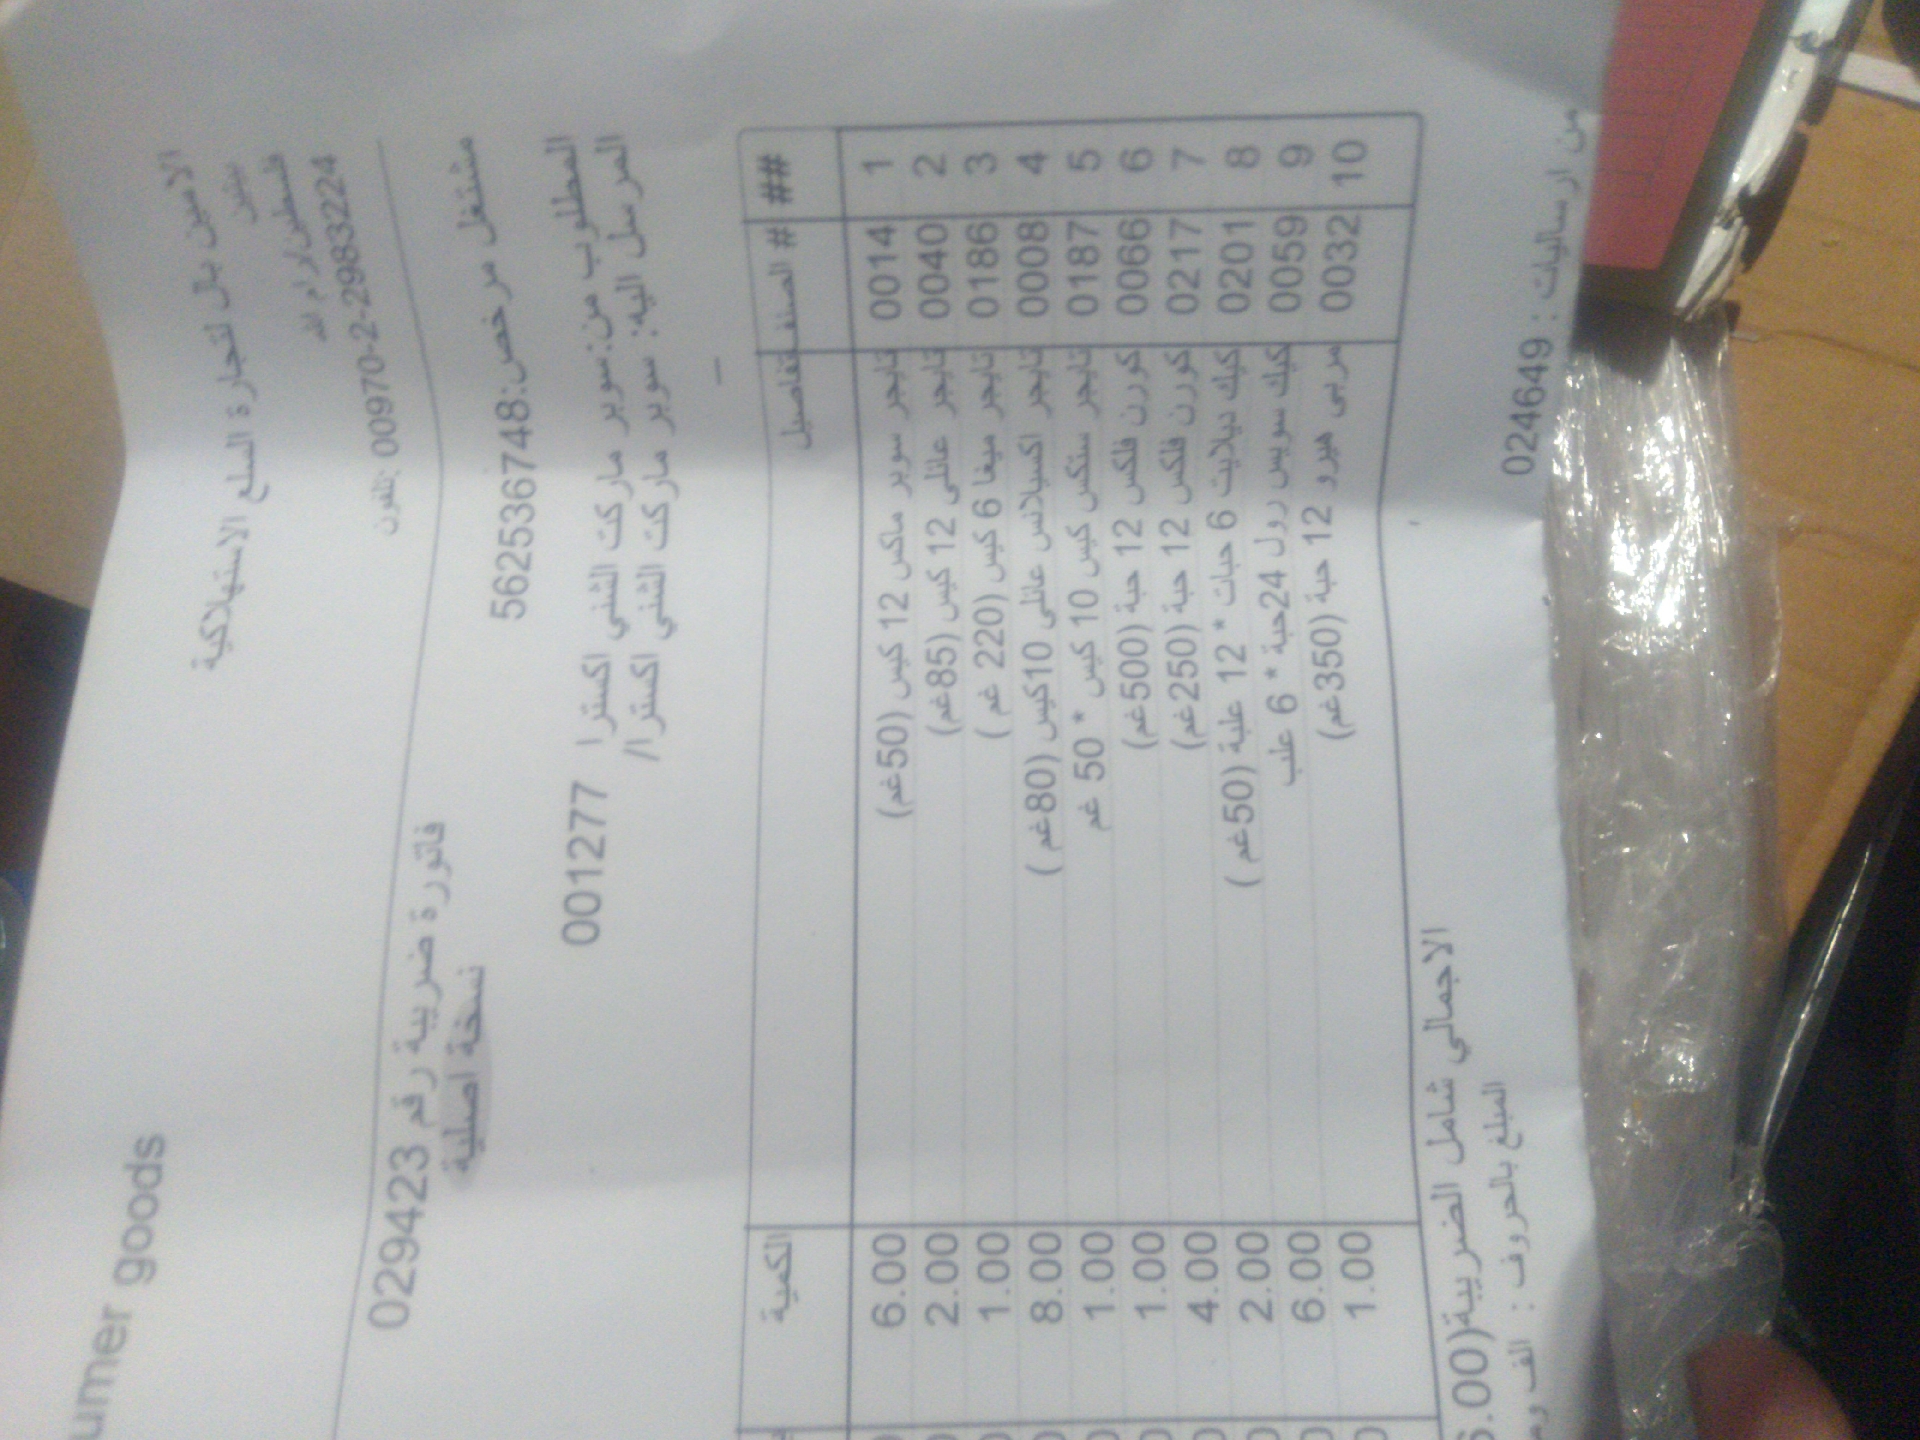 umer goods
الامين بال لتجارة السلع الاستهلاكية
فلسطين/رام الله
تلفون: 00970-2-2983224
فاتورة ضريبية رقم 029423
نسخة اصلية
مشتغل مرخص: 562536748
المطلوب من: سوبر ماركت الشني اكسترا 001277
المرسل اليه: سوبر ماركت الشني اكسترا/
## # الصنف التفاصيل الكمية
1 0014 تايجر سوبر ماكس 12 كيس (50غم) 6.00
2 0040 تايجر عائلي 12 كيس (85غم) 2.00
3 0186 تايجر ميغا 6 كيس (220 غم ) 1.00
4 0008 تايجر اكسبلانس عائلي 10كيس (80غم ) 8.00
5 0187 تايجر ستكس كيس 10 كيس * 50 غم 1.00
6 0066 كورن فلكس 12 حبة (500غم) 1.00
7 0217 كورن فلكس 12 حبة (250غم) 4.00
8 0201 كيك ديلايت 6 حبات * 12 علبة (50غم ) 2.00
9 0059 كيك سويس رول 24حبة * 6 علب 6.00
10 0032 مربى هيرو 12 حبة (350غم) 1.00
الاجمالي شامل الضريبية(
المبلغ بالحروف : الف
من ارساليات : 024649